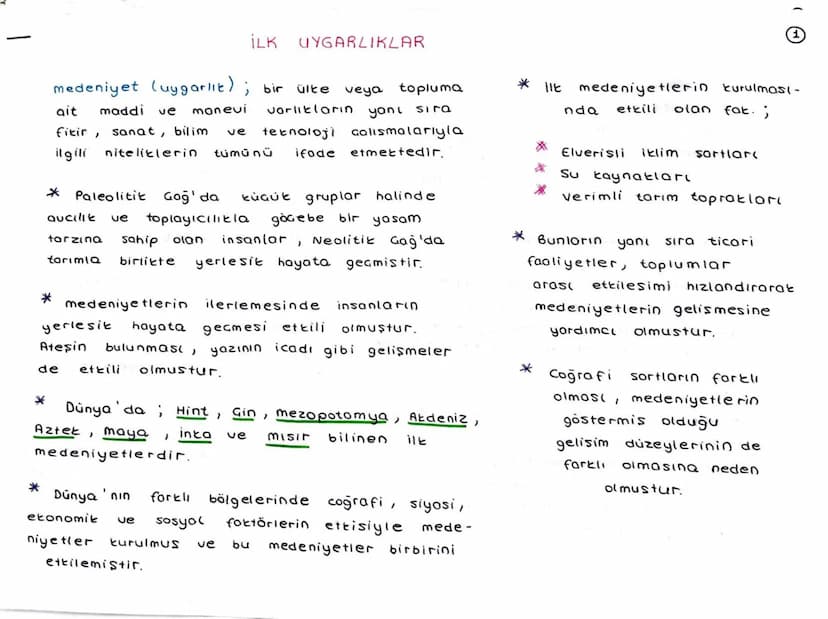 İLK UYGARLIKLAR
1
medeniyet (uygarlık) ; bir ülke veya topluma
ait maddi ve manevi varlıkların yanı sıra
fikir , sanat , bilim ve teknoloji calısmalarıyla
ilgili niteliklerin tümünü ifade etmektedir.
* Paleolitik Gağ'da kücük gruplar halinde
avcılık ve toplayıcılıkla göcebe bir yasam
tarzına sahip olan insanlar , Neolitik Gağ'da
tarımla birlikte yerlesik hayata gecmistir.
* medeniyetlerin ilerlemesinde insanların
yerlesik hayata gecmesi etkili olmustur.
Ateşin bulunması , yazının icadı gibi gelişmeler
de etkili olmustur.
* Dünya'da ; Hint , Gin , mezopotamya , Akdeniz ,
Aztek , maya , inka ve mısır bilinen ilk
medeniyetlerdir.
* Dünya'nın farklı bölgelerinde coğrafi , siyasi ,
ekonomik ve sosyal faktörlerin etkisiyle mede-
niyetler kurulmus ve bu medeniyetler birbirini
etkilemistir.
* İlk medeniyetlerin kurulması-
nda etkili olan fak. ;
* Elverisli iklim sartları
* Su kaynakları
* verimli tarım toprakları
* Bunların yanı sıra ticari
faaliyetler , toplumlar
arası etkilesimi hızlandırarak
medeniyetlerin gelismesine
yardımcı olmustur.
* Coğrafi sartların farklı
olması , medeniyetlerin
göstermis olduğu
gelisim düzeylerinin de
farklı olmasına neden
olmustur.